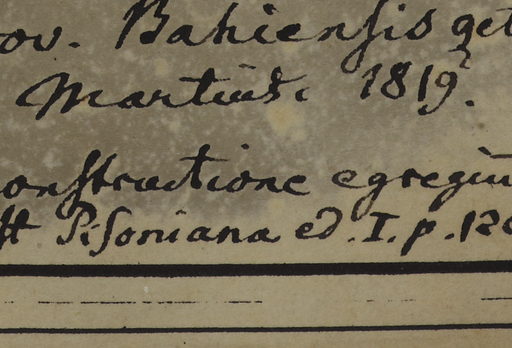 ov. Bahiensis get
Martius. 1819.
onstructione egregiu
st Pisoniana ed. I. p. 120